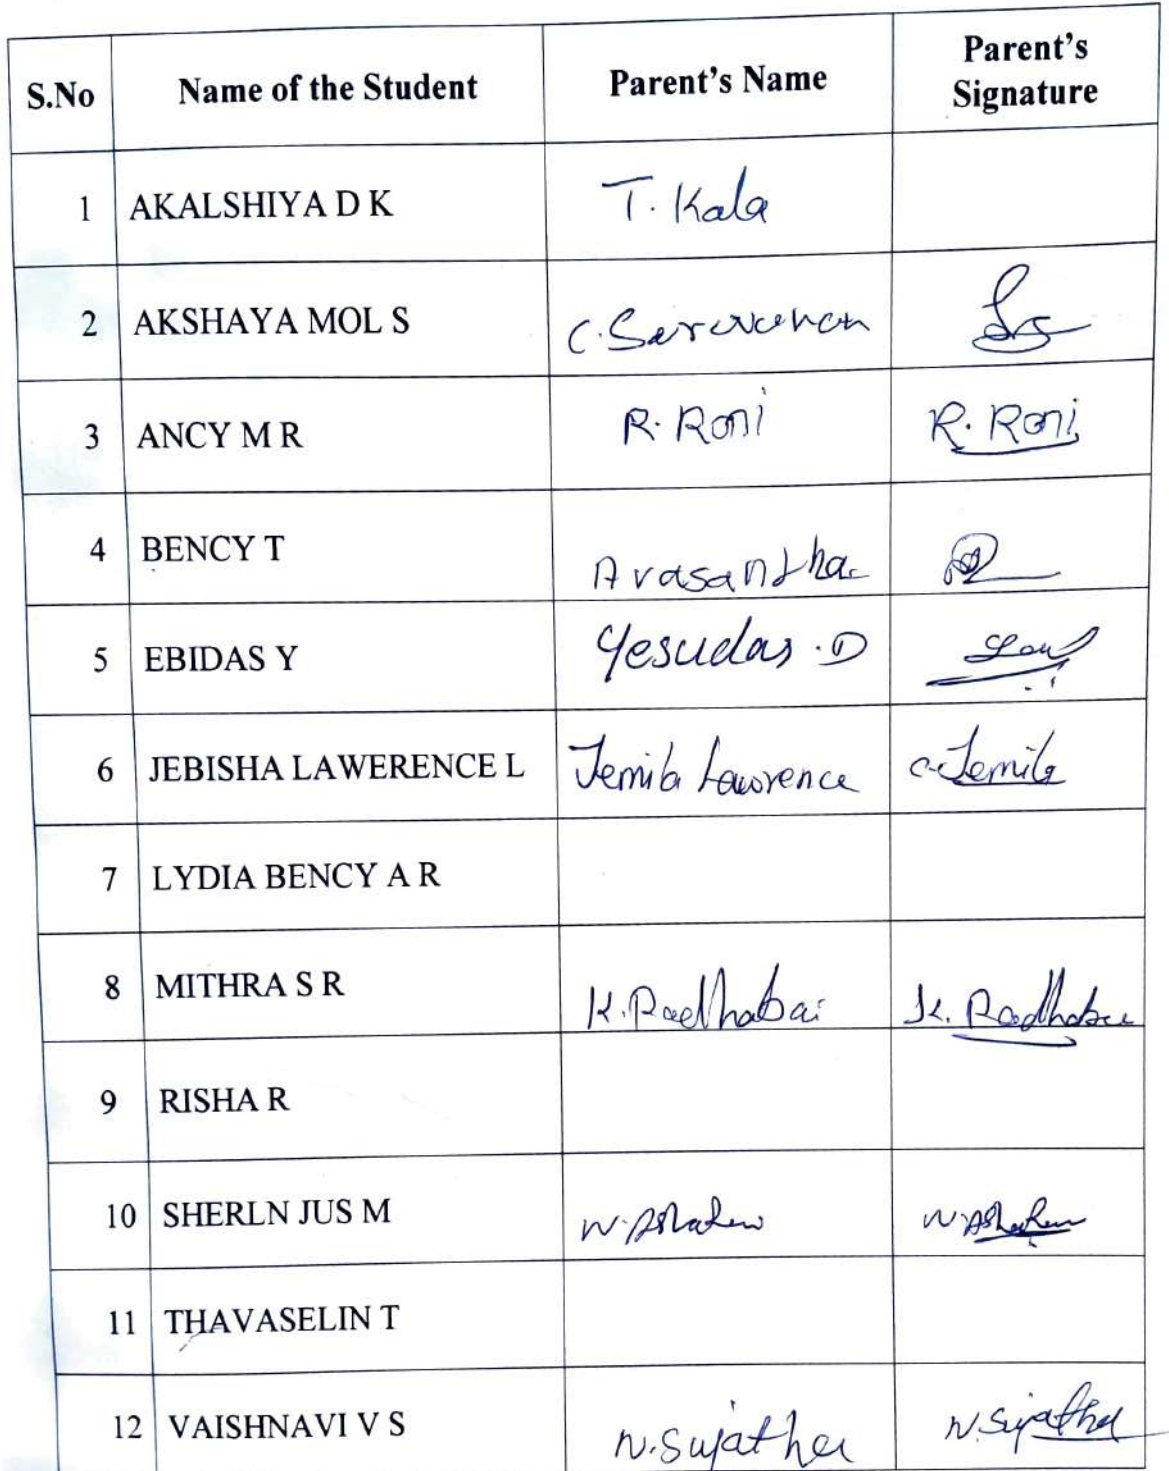 S.No Name of the Student Parent's Name Parent's Signature
1 AKALSHIYA D K T. Kala
2 AKSHAYA MOL S C. Saravanan
3 ANCY M R R. Roni R. Roni
4 BENCY T A vasantha
5 EBIDAS Y Yesudas . D
6 JEBISHA LAWERENCE L Jemila Lawrence C. Jemila
7 LYDIA BENCY A R
8 MITHRA S R K. Radhabai K. Radhabai
9 RISHA R
10 SHERLN JUS M
11 THAVASELIN T
12 VAISHNAVI V S N. Sujatha N. Sujatha